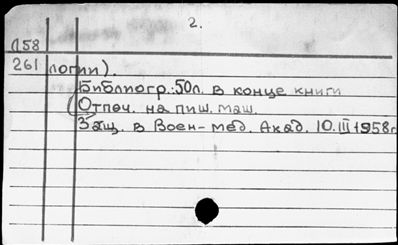 2.
158
261 логии).
Библиогр.: 50л. в конце книги
(Отпеч. на пиш. маш.
Защ. в Воен-мед. Акад. 10.III 1958г